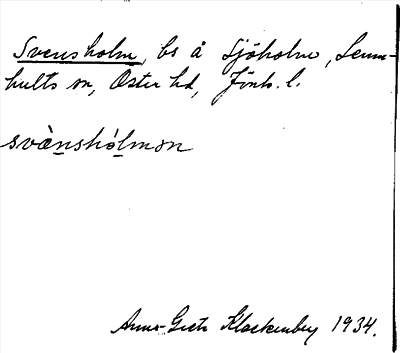 Svensholm, bs å Sjöholm, Lemn-
hults sn, Öster hd, Jönk. l.
svànshólmən
Anna-Greta Klockenberg 1934.